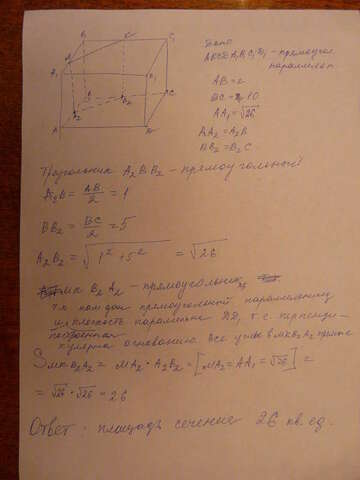 Дано
ABCDA₁B₁C₁D₁ - прямоугол.
параллелеп.
AB = 2
BC = 10
AA₁ = √26
AA₂ = A₂B
BB₂ = B₂C
Треугольник A₂BB₂ - прямоугольный
A₂B = AB/2 = 1
BB₂ = BC/2 = 5
A₂B₂ = √1² + 5² = √26
MKB₂A₂ - прямоугольник,
т.к. нам дан прямоугольный параллелепипед
и плоскость параллельна DD₁ т.е. перпенди-
кулярна основанию. Все углы в MKB₂A₂ прямые
S MKB₂A₂ = MA₂ · A₂B₂ = [MA₂ = AA₁ = √26] =
= √26 · √26 = 26
Ответ: площадь сечения 26 кв. ед.